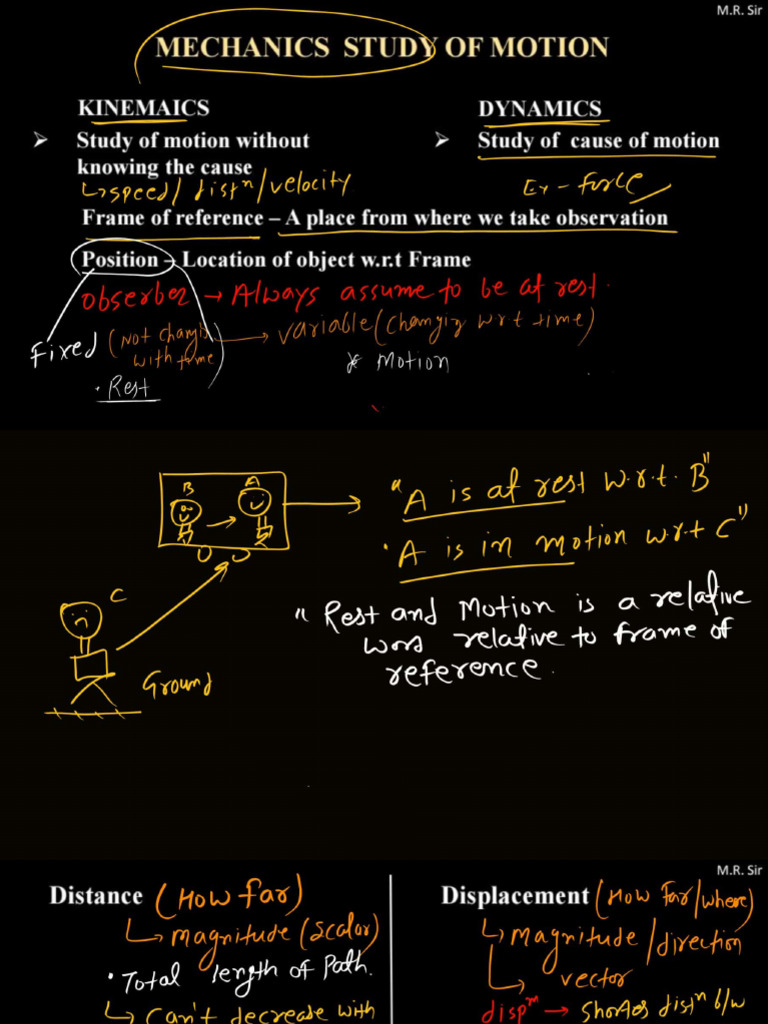 M.R. Sir
MECHANICS STUDY OF MOTION
KINEMAICS
➢ Study of motion without
knowing the cause
↳ speed / distⁿ / velocity
DYNAMICS
➢ Study of cause of motion
Ex - force
Frame of reference – A place from where we take observation
Position – Location of object w.r.t Frame
Obserber → Always assume to be at rest.
Fixed (Not changing with time) → variable (changing wrt time)
• Rest
* Motion
B A
"A is at rest w.r.t. B"
• A is in motion w.r.t C"
C
Ground
"Rest and Motion is a relative
word relative to frame of
reference.
M.R. Sir
Distance (How far)
↳ magnitude (scalar)
• Total length of Path.
↳ Can't decrease with
Displacement (How far/where)
↳ magnitude / direction
↳ vector
dispⁿ → Shortes distⁿ b/w